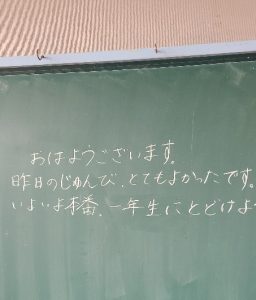 おはようございます。
昨日のじゅんび、とてもよかったです。
いよいよ本番、一年生にとどけよ